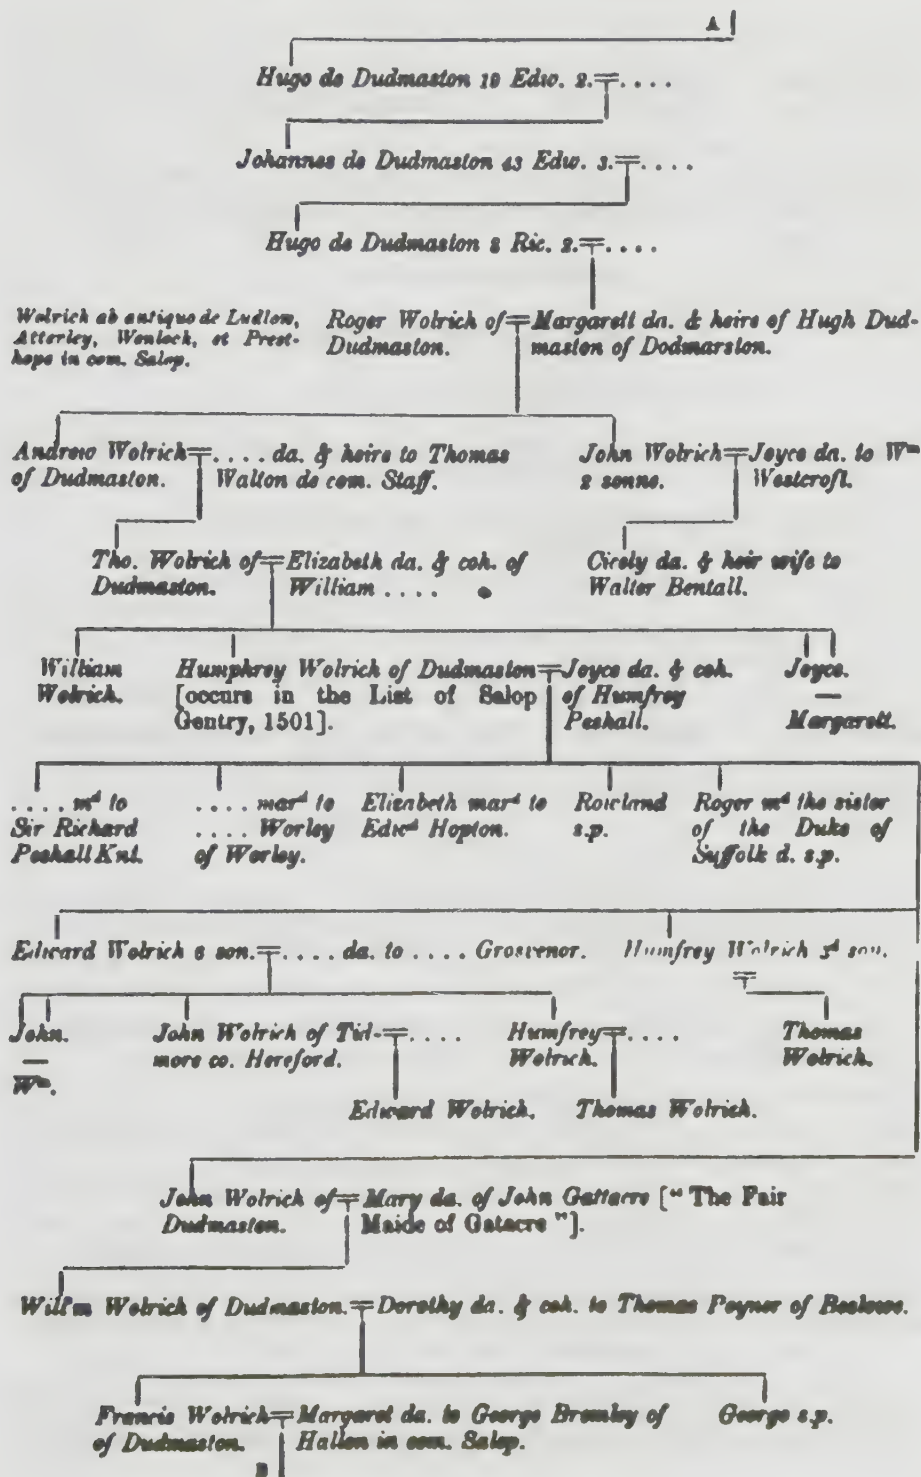 A
Hugo de Dudmaston 19 Edw. 2.=. . . .
Johannes de Dudmaston 43 Edw. 3.=. . . .
Hugo de Dudmaston 2 Ric. 2.=. . . .
Wolrich ab antiquo de Ludlow,
Atterley, Wenlock, et Prest-
hope in com. Salop.
Roger Wolrich of=
Dudmaston.
Margarett da. & heire of Hugh Dud-
maston of Dodmarston.
Andrew Wolrich=
of Dudmaston.
. . . . da. & heire to Thomas
Walton de com. Staff.
John Wolrich=
2 sonne.
Joyce da. to Wm
Westcroft.
Tho. Wolrich of=
Dudmaston.
Elizabeth da. & coh. of
William . . . .
Cicely da. & heir wife to
Walter Bentall.
William
Wolrich.
Humphrey Wolrich of Dudmaston=
[occurs in the List of Salop
Gentry, 1501].
Joyce da. & coh.
of Humfrey
Peshall.
Joyce.
—
Margarett.
. . . . md to
Sir Richard
Peshall Knt.
. . . . mard to
. . . . Worley
of Worley.
Elizabeth mard to
Edwd Hopton.
Rowland
s.p.
Roger md the sister
of the Duke of
Suffolk d. s.p.
Edward Wolrich 6 son.=. . . . da. to . . . . Grosvenor.
Humfrey Wolrich 3d son.
=
John.
—
Wm.
John Wolrich of Tid-=. . . .
more co. Hereford.
Humfrey=. . . .
Wolrich.
Thomas
Wolrich.
Edward Wolrich.
Thomas Wolrich.
John Wolrich of=
Dudmaston.
Mary da. of John Gattacre [“The Fair
Maide of Gatacre”].
Will'm Wolrich of Dudmaston.=Dorothy da. & coh. to Thomas Poyner of Beslowe.
Francis Wolrich=
of Dudmaston.
Margaret da. to George Bromley of
Hallon in com. Salop.
George s.p.
B